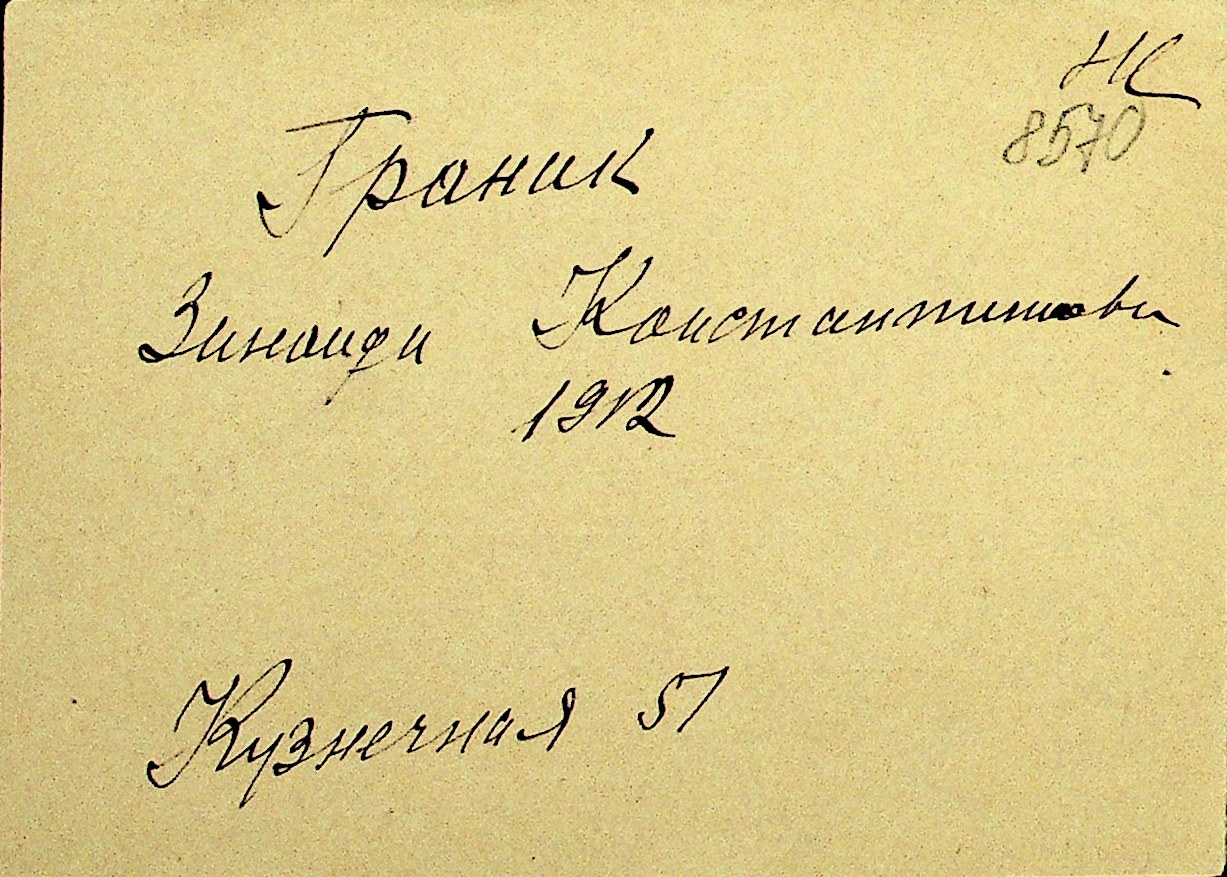 НС
8570
Граник
Зинаида Константинова
1912
Кузнечная 51